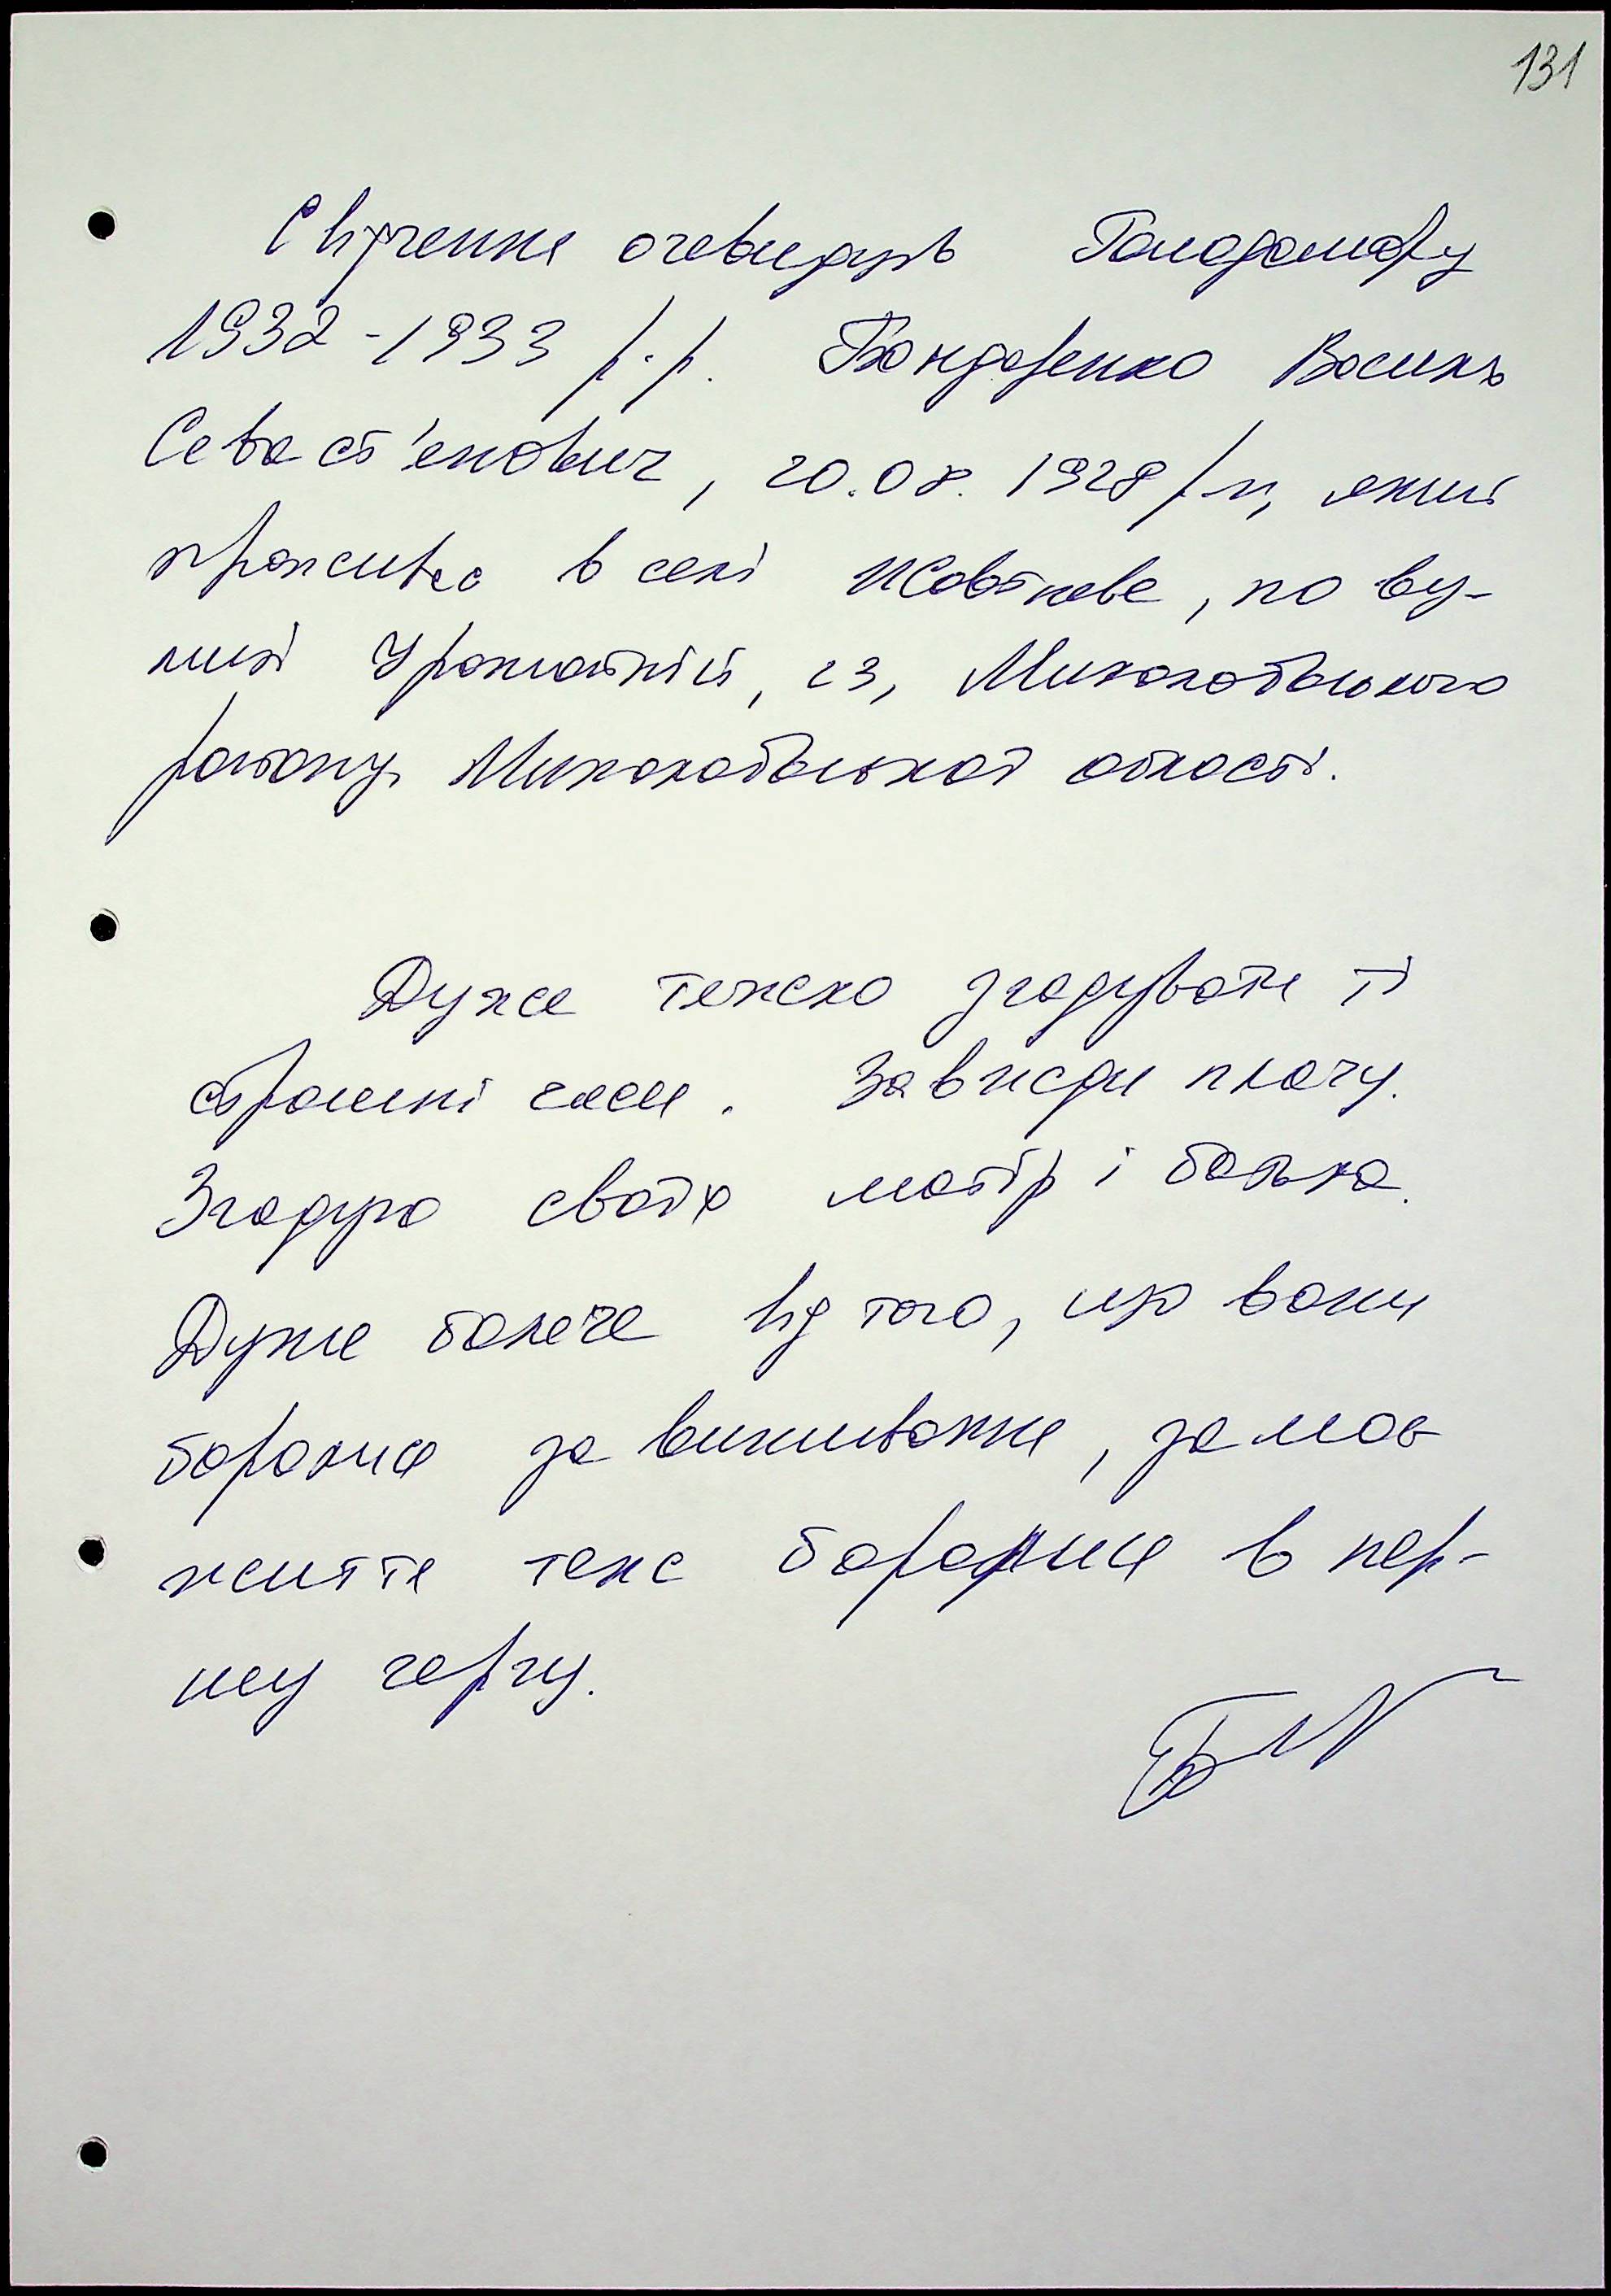 131
Свідчення очевидців Голодомору
1932-1933 р.р. Бондаренко Василь
Севаст'янович, 20.08.1928 р.н, який
проживає в селі Жовтневе, по ву-
лиці Урожайній, 23, Миколаївського
району, Миколаївської області.
Дуже тяжко згадувати ті
страшні часи. Завжди плачу.
Згадую своїх матір і батька.
Дуже боляче від того, що вони
боролися за виживання, за моє
життя теж боролися в пер-
шу чергу.